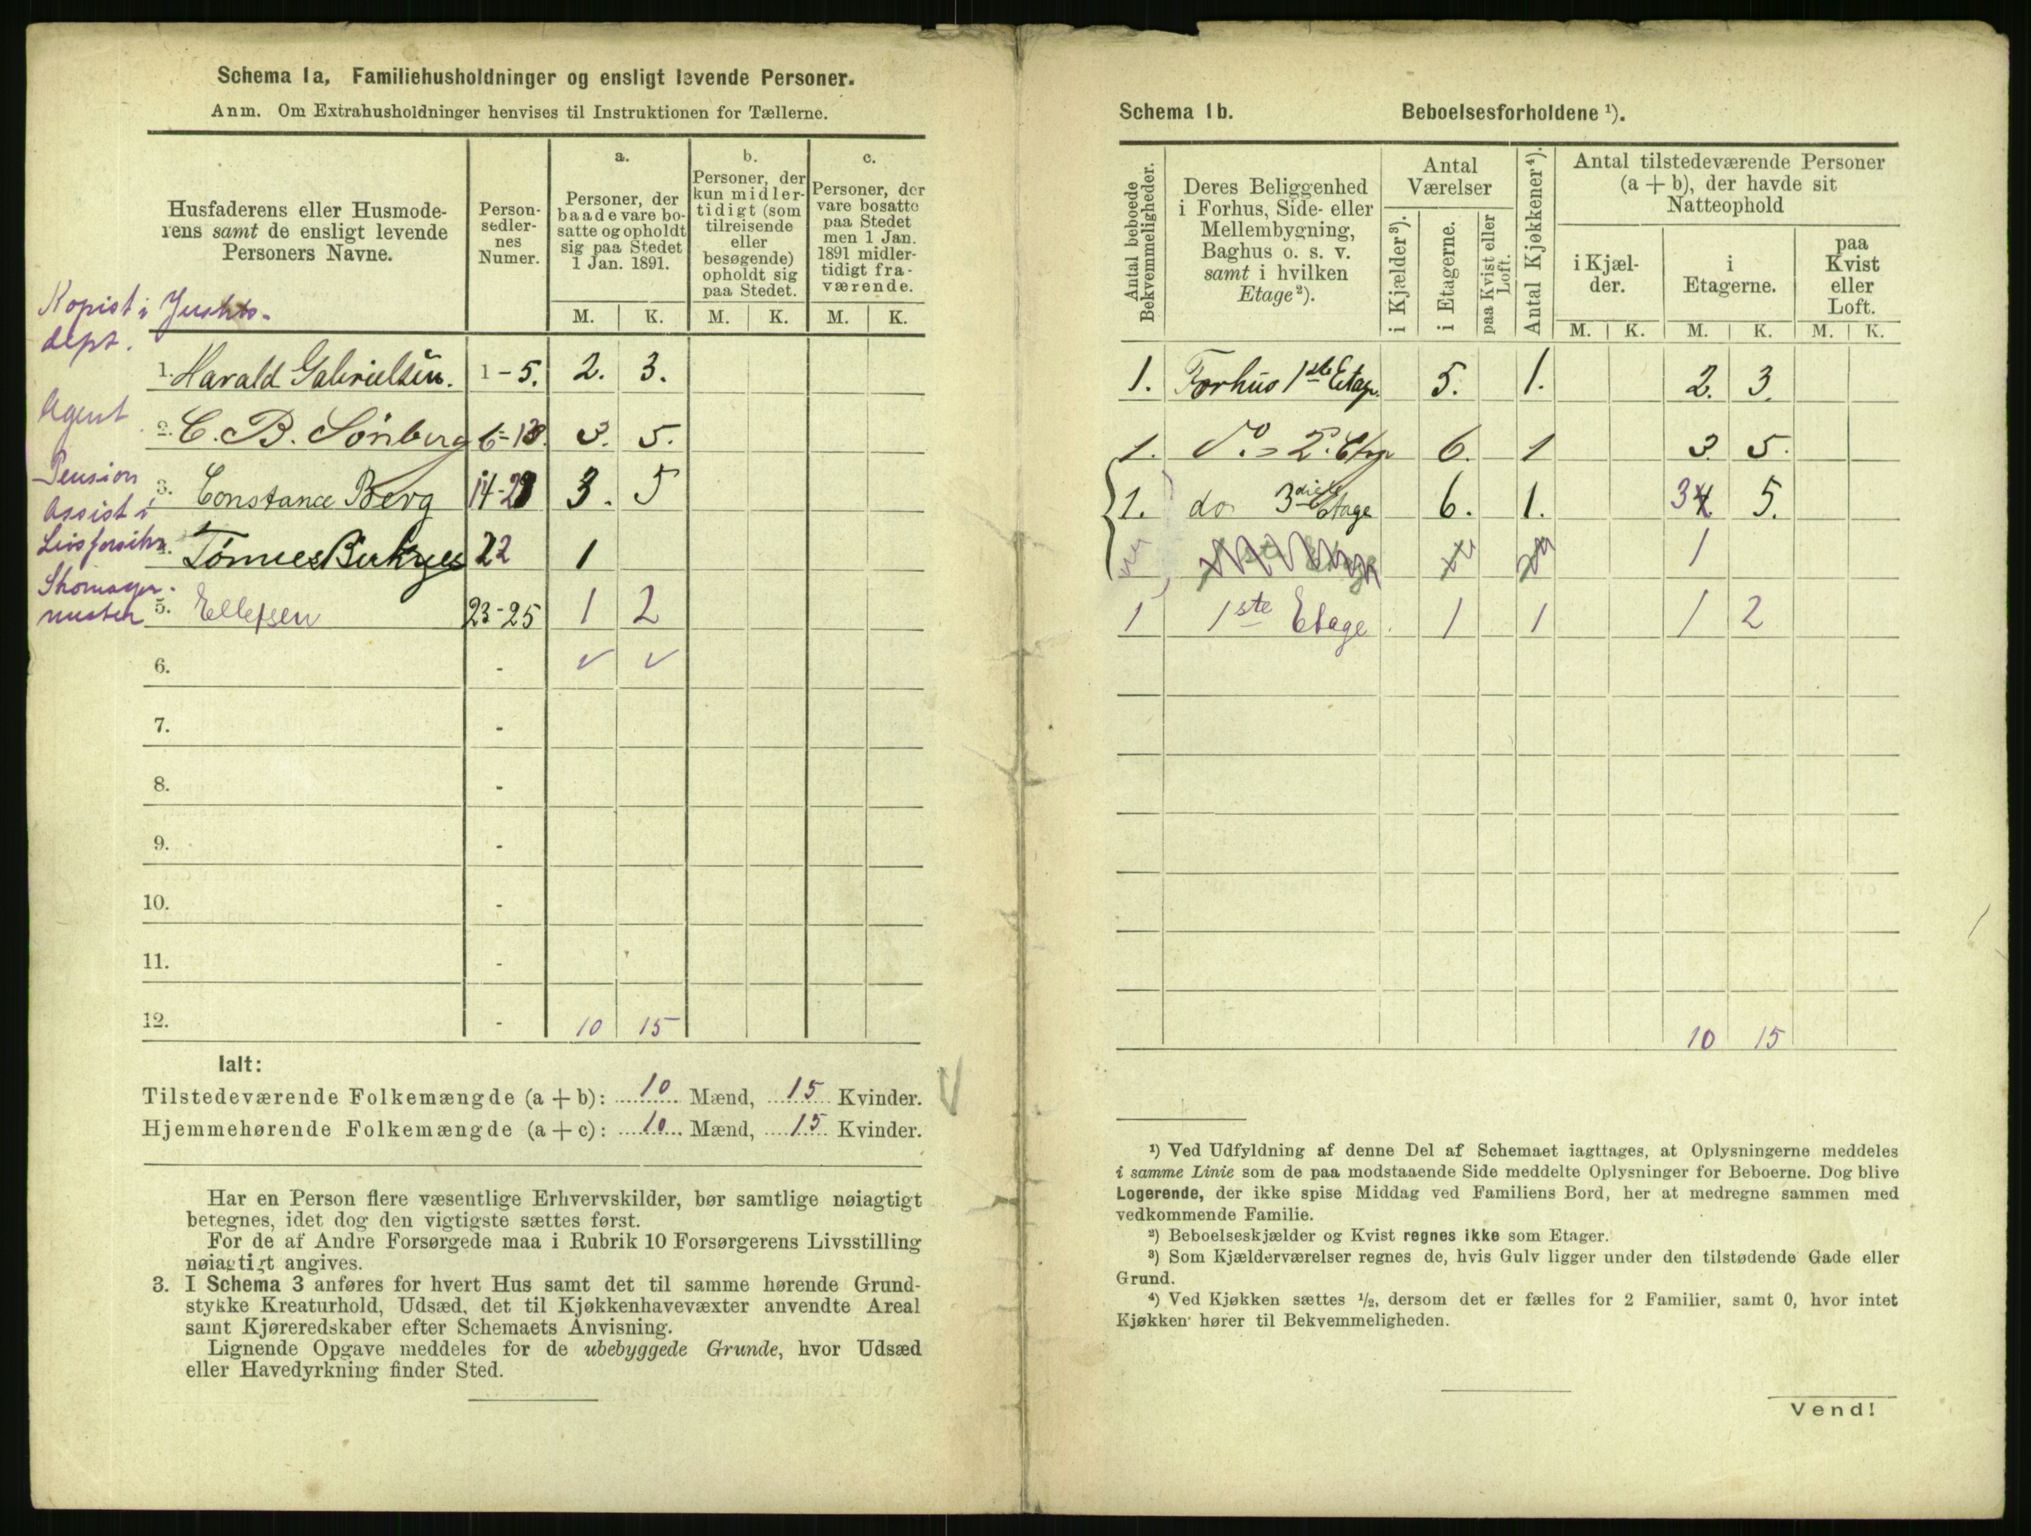 Schema 1a, Familiehusholdninger og ensligt levende Personer.
Anm. Om Extrahusholdninger henvises til Instruktionen for Tællerne.
Husfaderens eller Husmode-
rens samt de ensligt levende
Personers Navne.
Person-
sedler-
nes
Numer.
a.
Personer, der
baade vare bo-
satte og opholdt
sig paa Stedet
1 Jan. 1891.
b.
Personer, der
kun midler-
tidigt (som
tilreisende
eller
besøgende)
opholdt sig
paa Stedet.
c.
Personer, der
vare bosatte
paa Stedet
men 1 Jan.
1891 midler-
tidigt fra-
værende.
M. K. M. K. M. K.
Kopist i Justits-
dept.
1. Harald Gabrielsen. 1-5. 2. 3.
Agent
2. C. B. Sønberg 6-13. 3. 5.
Pension
3. Constance Berg 14-21 3. 5
Assist i
4. Tønnes 22 1
Skomager-
mester 5. Ellefsen 23-25 1 2
6. - ✓ ✓
7. -
8. -
9. -
10. -
11. -
12. - 10 15
Ialt:
Tilstedeværende Folkemængde (a + b): 10 Mænd, 15 Kvinder.
Hjemmehørende Folkemængde (a + c): 10 Mænd, 15 Kvinder.
Har en Person flere væsentlige Erhvervskilder, bør samtlige nøiagtigt
betegnes, idet dog den vigtigste sættes først.
For de af Andre Forsørgede maa i Rubrik 10 Forsørgerens Livsstilling
nøiagtigt angives.
3. I Schema 3 anføres for hvert Hus samt det til samme hørende Grund-
stykke Kreaturhold, Udsæd, det til Kjøkkenhavevæxter anvendte Areal
samt Kjøreredskaber efter Schemaets Anvisning.
Lignende Opgave meddeles for de ubebyggede Grunde, hvor Udsæd
eller Havedyrkning finder Sted.
Schema 1b. Beboelsesforholdene ¹).
Antal beboede
Bekvemmeligheder.
Deres Beliggenhed
i Forhus, Side- eller
Mellembygning,
Baghus o. s. v.
samt i hvilken
Etage²).
Antal
Værelser
i Kjælder³).
i Etagerne.
paa Kvist eller
Loft.
Antal Kjøkkener⁴).
Antal tilstedeværende Personer
(a + b), der havde sit
Natteophold
i Kjæl-
der.
i
Etagerne.
paa
Kvist
eller
Loft.
M. K. M. K. M. K.
1. Forhus 1ste Etag. 5. 1. 2. 3.
1. Do. = 2. Etag 6. 1 3. 5.
1. do 3die Etage 6. 1. 3 5.
1
1 1ste Etage 1 1 1 2
10 15
¹) Ved Udfyldning af denne Del af Schemaet iagttages, at Oplysningerne meddeles
i samme Linie som de paa modstaaende Side meddelte Oplysninger for Beboerne. Dog blive
Logerende, der ikke spise Middag ved Familiens Bord, her at medregne sammen med
vedkommende Familie.
²) Beboelseskjælder og Kvist regnes ikke som Etager.
³) Som Kjælderværelser regnes de, hvis Gulv ligger under den tilstødende Gade eller
Grund.
⁴) Ved Kjøkken sættes ½, dersom det er fælles for 2 Familier, samt 0, hvor intet
Kjøkken hører til Bekvemmeligheden.
Vend!